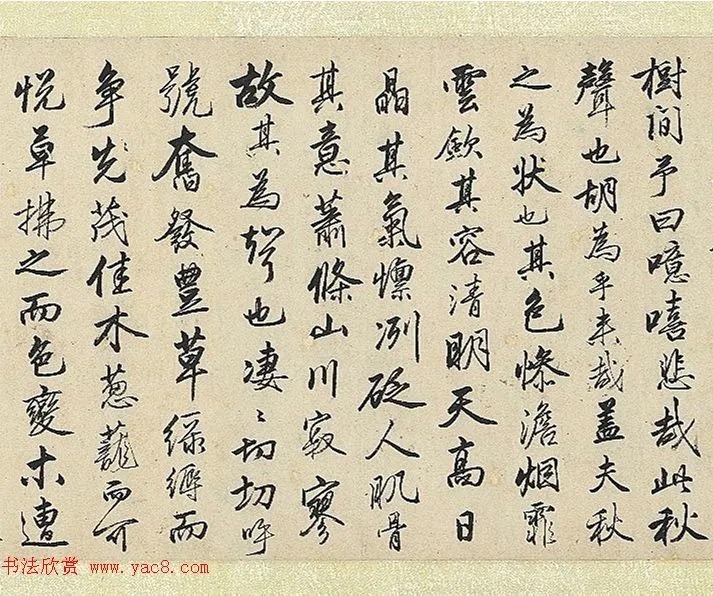 樹間予曰噫嘻悲哉此秋
聲也胡為乎来哉蓋夫秋
之為狀也其色慘澹烟霏
雲斂其容清明天高日
晶其氣慄冽砭人肌骨
其意蕭條山川寂寥
故其為聲也凄〻切切呼
號奮發豐草綠縟而
争先茂佳木葱蘢而可
悦草拂之而色變木遭
书法欣赏 www.yac8.com